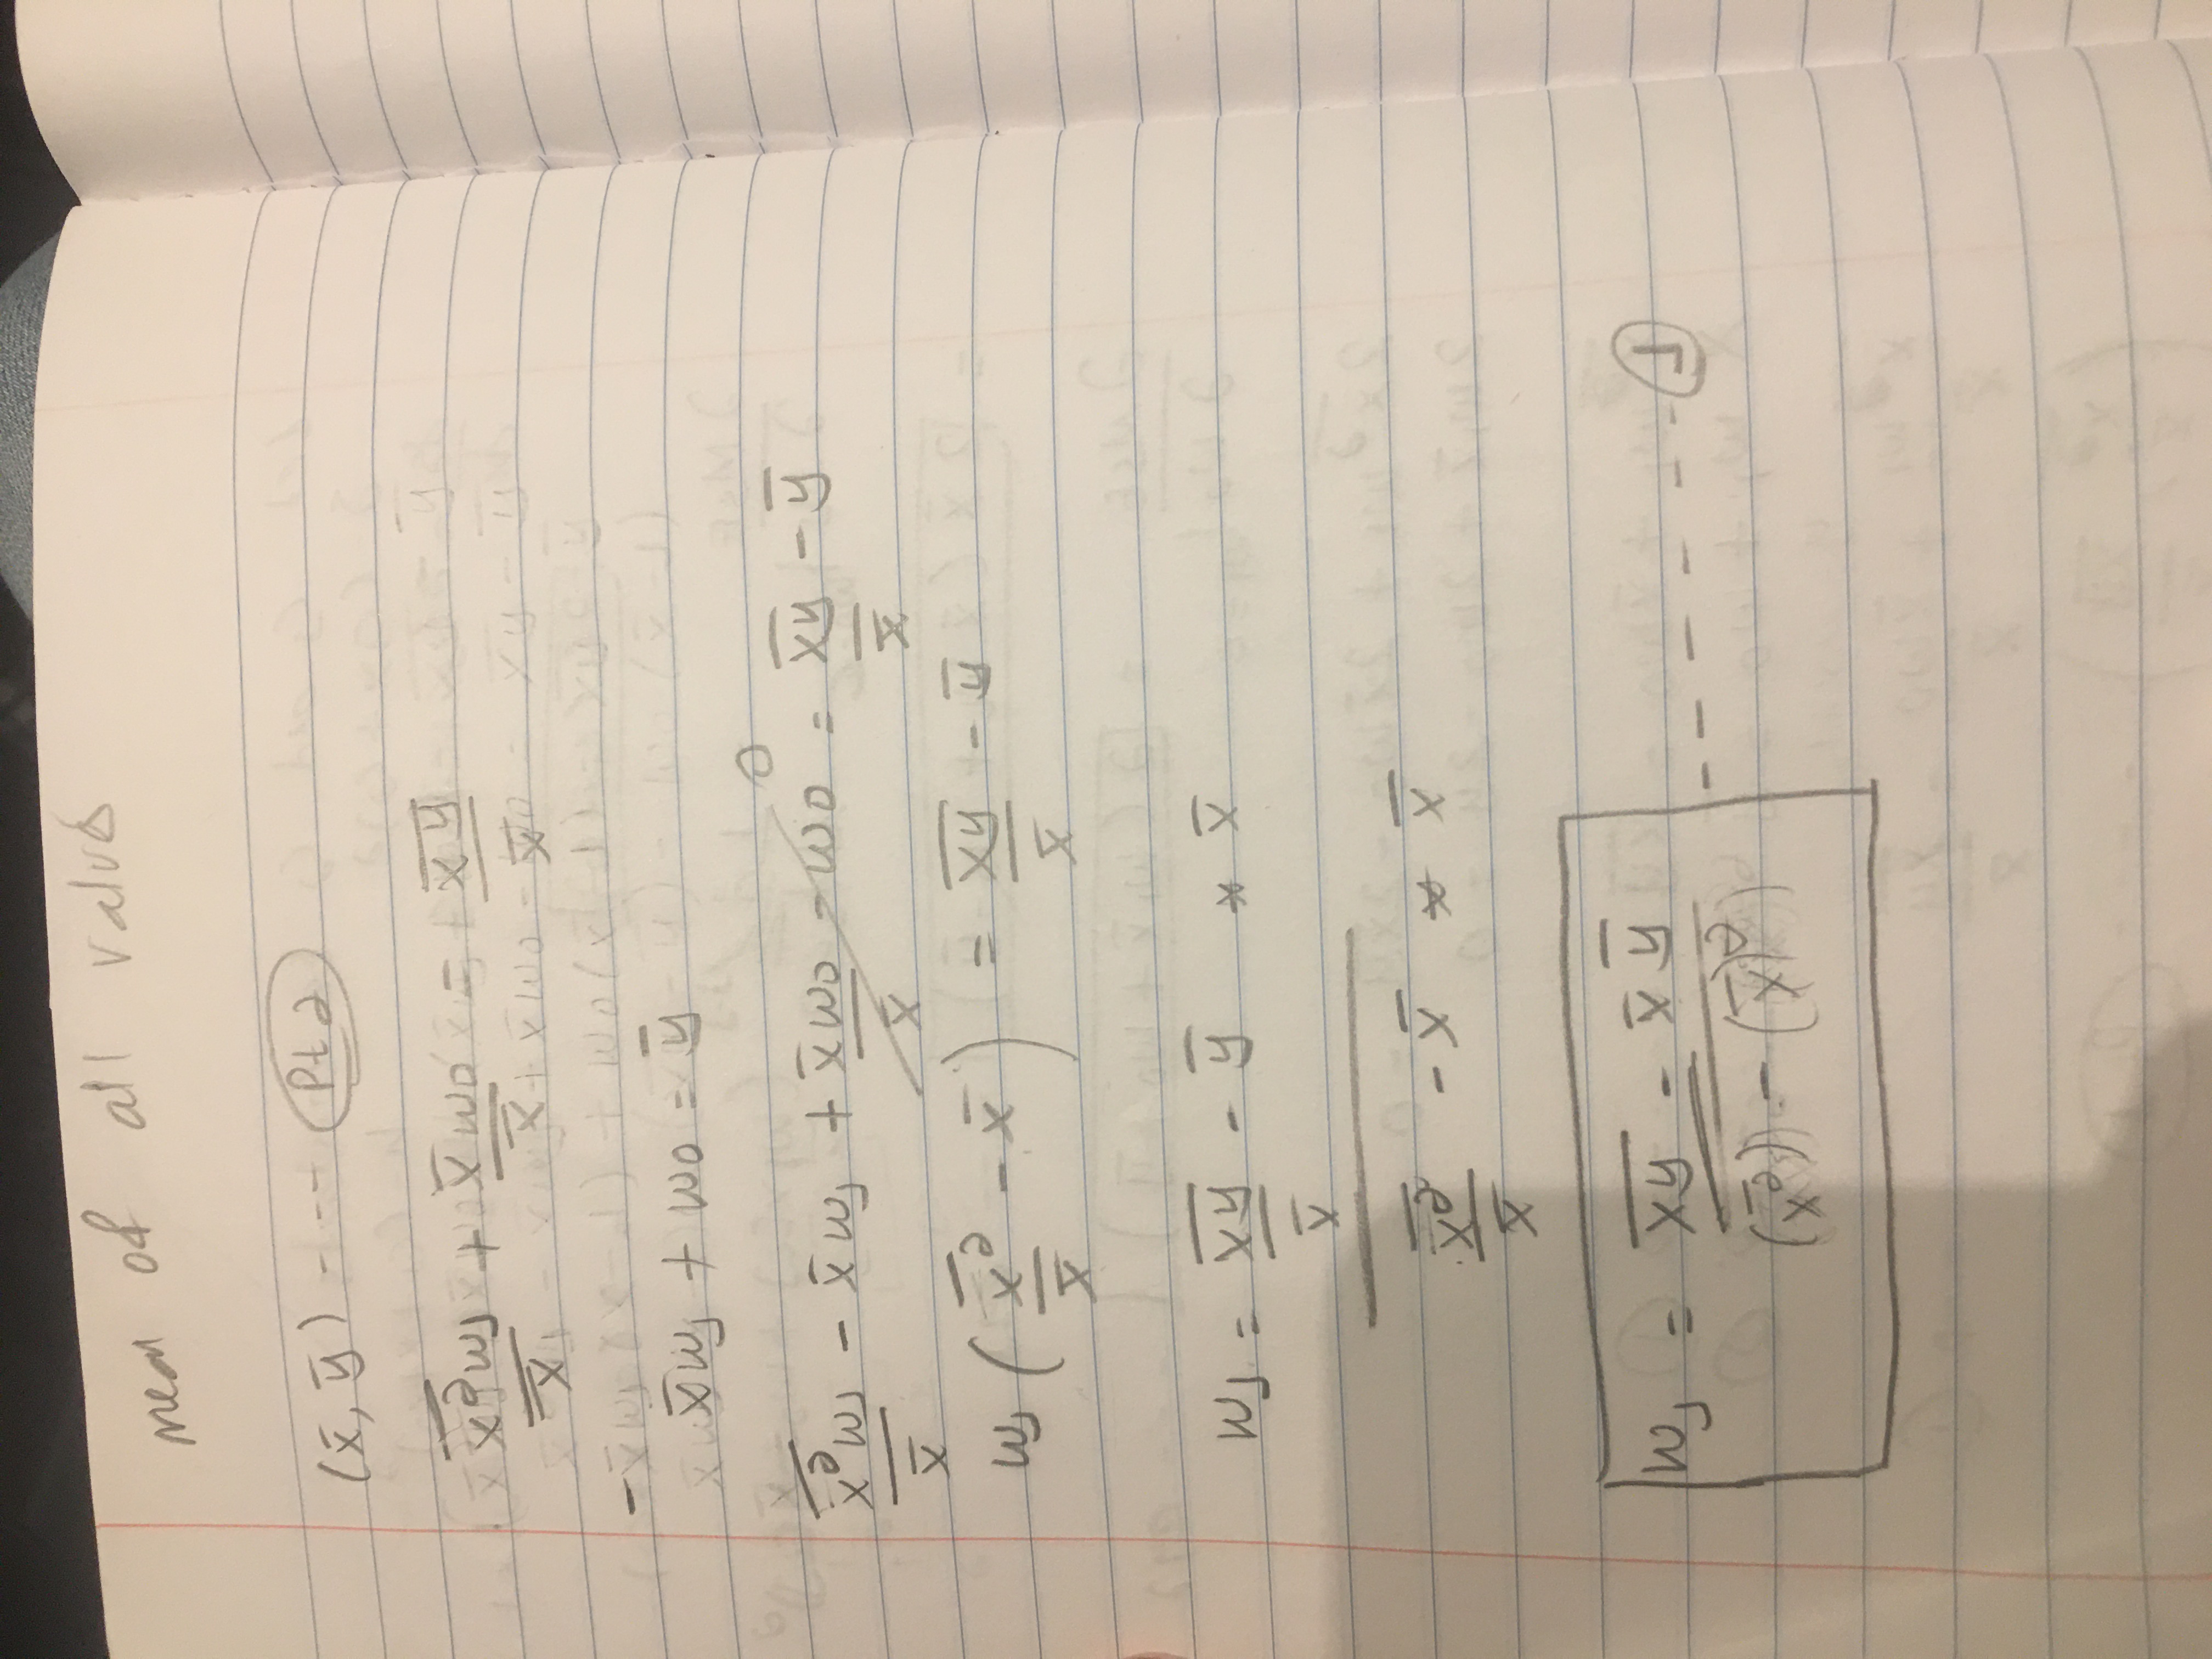 mean of all values
(x̄, ȳ) - - - - Pt 2
x̄²w₁/x̄ + x̄w0/x̄ = x̄ȳ/x̄
-
x̄w₁ + w0 = ȳ
x̄²w₁/x̄ - x̄w₁ + x̄w0/x̄ - w0 0 = x̄ȳ/x̄ - ȳ
w₁(x̄²/x̄ - x̄) = x̄ȳ/x̄ - ȳ
w₁ = x̄ȳ/x̄ - ȳ * x̄
x̄²/x̄ - x̄ * x̄
w₁ = x̄ȳ - x̄ ȳ - - - - - - 1
(x̄²) - (x̄)²